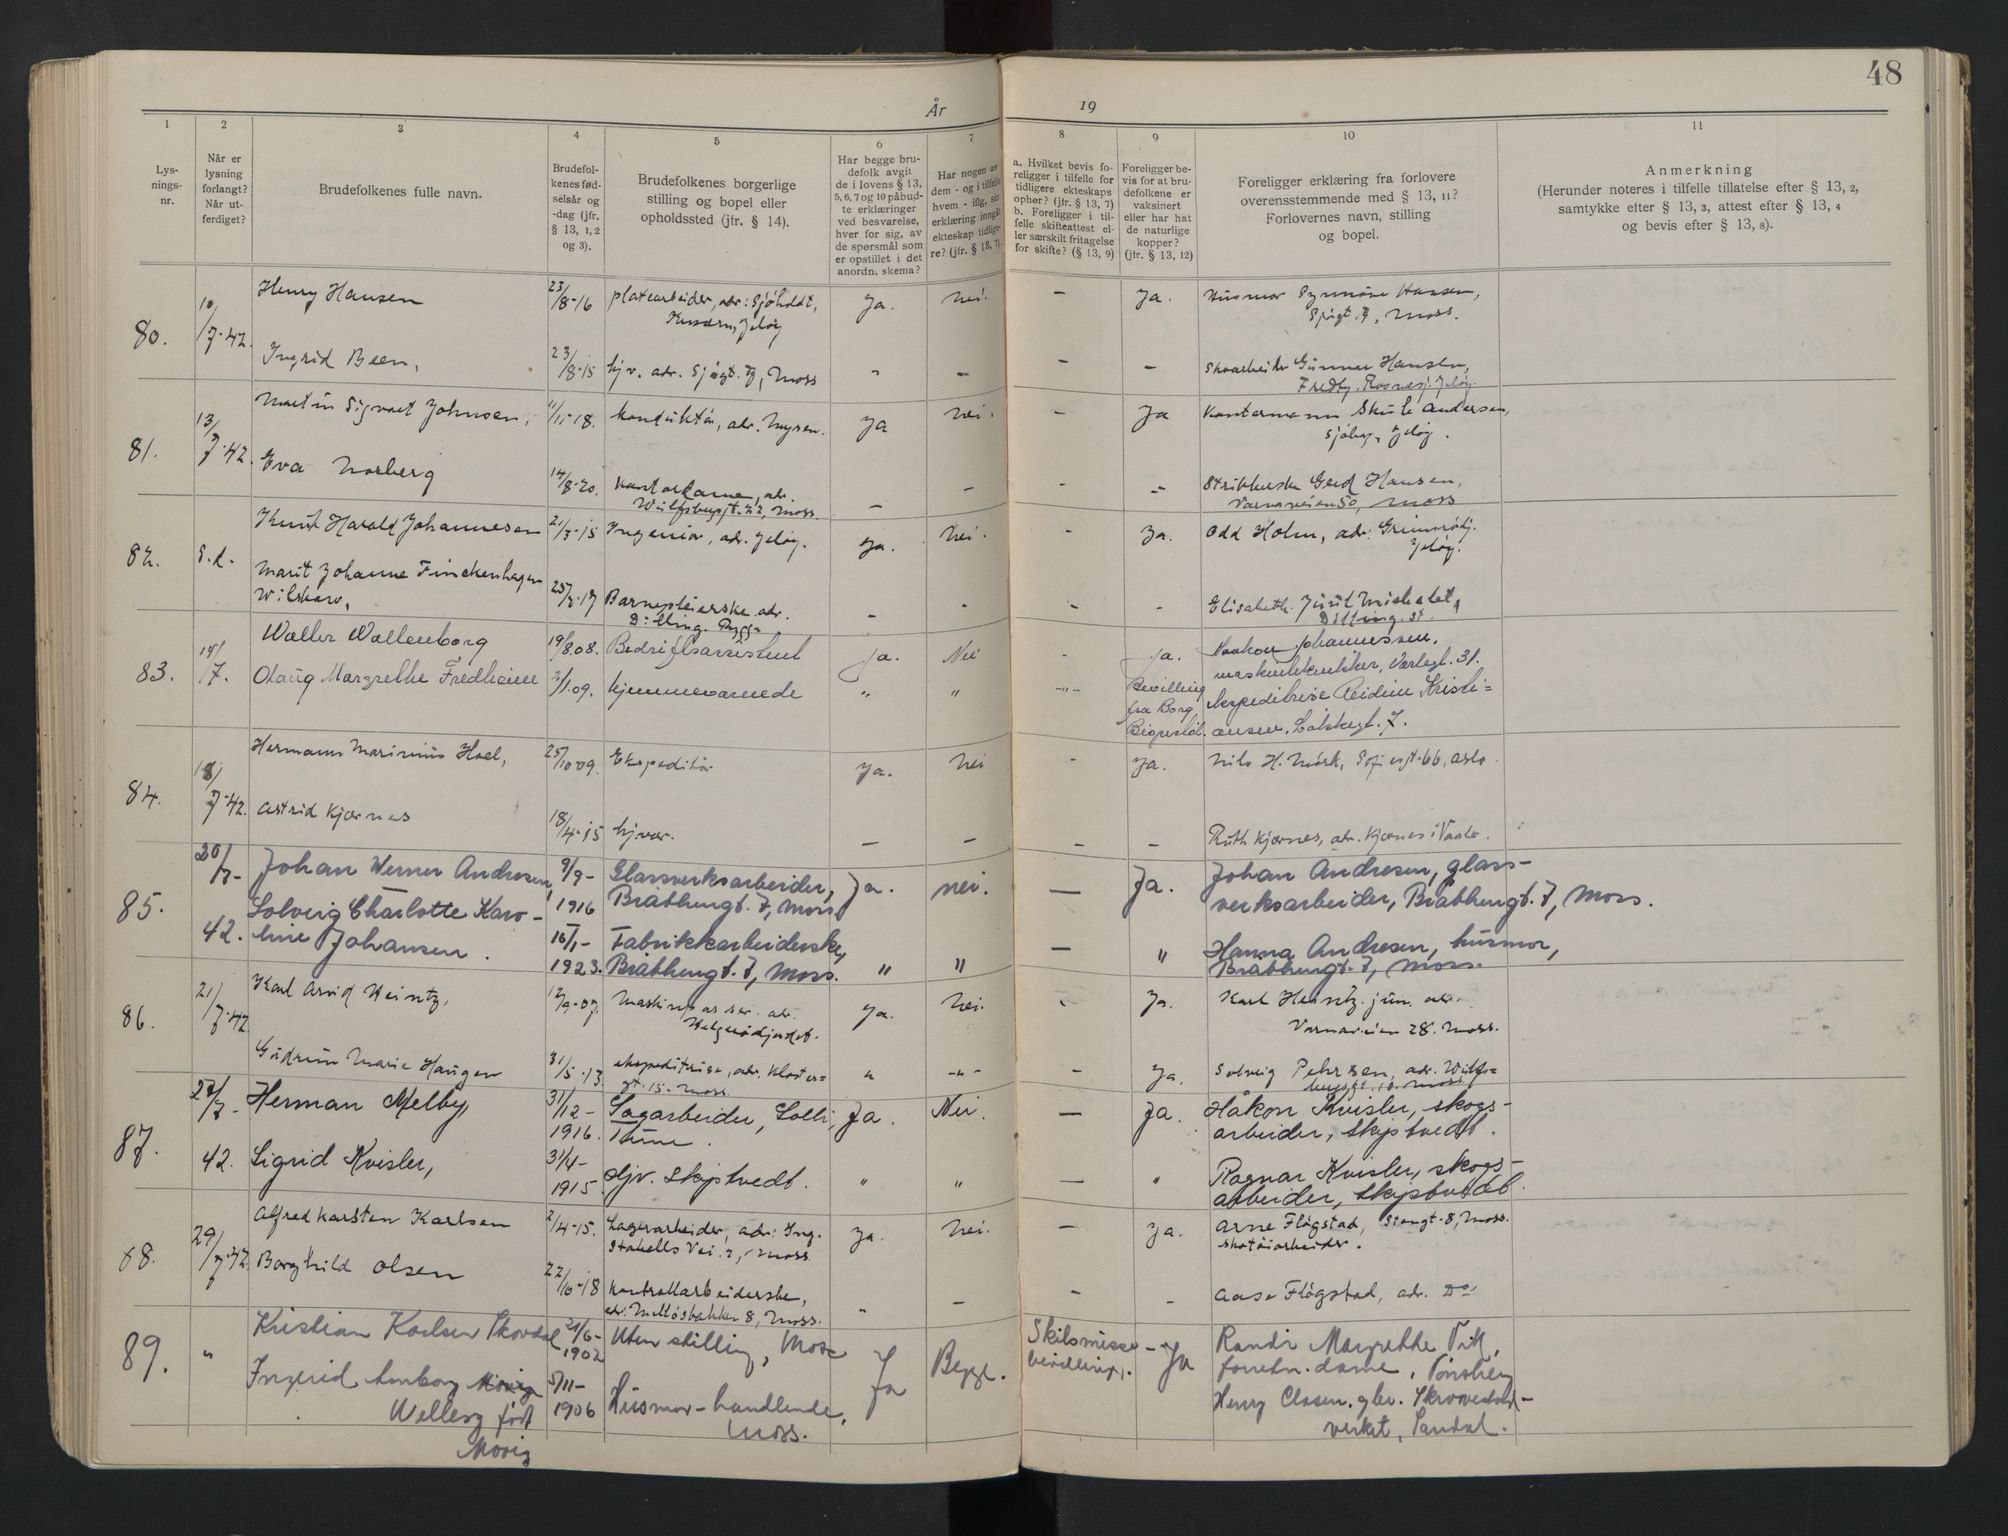 48
År 19
1
Lys-
nings-
nr.
2
Når er
lysning
forlangt?
Når ut-
ferdiget?
3
Brudefolkenes fulle navn.
4
Brudefol-
kenes fød-
selsår og
-dag (jfr.
§ 13, 1, 2
og 3).
5
Brudefolkenes borgerlige
stilling og bopel eller
opholdssted (jfr. § 14).
6
Har begge bru-
defolk avgit
de i lovens § 13,
5, 6, 7 og 10 påbud-
te erklæringer
ved besvarelse,
hver for sig, av
de spørsmål som
er opstillet i det
anordn. skema?
7
Har nogen av
dem - og i tilfelle
hvem - iflg. sin
erklæring inngått
ekteskap tidlige-
re? (jfr. § 13, 7).
8
a. Hvilket bevis fo-
religger i tilfelle for
tidligere ekteskaps
ophør? (jfr. § 13, 7)
b. Foreligger i til-
felle skifteattest el-
ler særskilt fritagelse
for skifte? (§ 13, 9)
9
Foreligger be-
vis for at bru-
defolkene er
vaksinert
eller har hat
de naturlige
kopper?
(jfr. § 13, 12)
10
Foreligger erklæring fra forlovere
overensstemmende med § 13, 11?
Forlovernes navn, stilling
og bopel.
11
Anmerkning
(Herunder noteres i tilfelle tillatelse efter § 13, 2,
samtykke efter § 13, 3, attest efter § 13, 4
og bevis efter § 13, 8).
80. 10/7-42. Henry Hansen 23/8-16 platearbeider, adr: Sjøholdt, Ja. nei. - Ja. Husmor Synnøve Hansen,
Jeløy Sjøgt. 7, Moss.
Ingrid Been, 23/8-15 hjv. adr. Sjøgt. 7, Moss " - - - Skoarbeider Gunnar Hansen,
Jeløy.
81. 13/7-42. Martin Sigvart Johnsen, 11/11-18. konduktør, adr. Mysen. Ja nei. - Ja Kontormann Skule Andersen,
Jeløy.
Eva Norberg 14/8-20. Kontordame, adr. - - - Strikkerske Gerd Hansen,
Wulfsbergt. 22, Moss. Varnaveien 50, Moss
82. s.d. Knut Harald Johannesen 21/3-15 Ingeniør, adr. Jeløy. Ja. Nei. - Ja. Odd Holm, adr:
Jeløy.
Marit Johanne Finckenhagen 25/3-17 Barnepleierske adr. - - - - Elisabeth
Dilling. Rygge Dilling st.
83. 14/7. Walter Wallenborg 19/8.08. Bedriftsassistent Ja. Nei - Ja. Haakon Johannessen,
maskintekniker, Varlegt. 31.
Olaug Margrethe Fredheim 2/1.09. hjemmeværende " " -"- Bevilling Ekspeditrise Reidun Kristi=
fra Borg ansen, Loiskegt. 7.
84. 18/7-42. Hermann Marinius Hoel, 25/10 09. Ekspeditør Ja. Nei - Ja. Nils H. Mørk, Sofiesgt. 66, Oslo
Astrid Kjærnes 18/4-15 hjvær. - - - - Ruth Kjærnes, adr. Kjærnes i Vaaler.
85. 20/7- 42. Johan Werner Andresen, 9/9- 1916 Glassverksarbeider, Ja. nei. - Ja. Johan Andresen, glass-
Bråthengt. 7, Moss verksarbeider, Bråthengt. 7, Moss.
Solveig Charlotte Karo- 16/1- 1923. Fabrikkarbeiderske, " " - " Hanna Andresen, husmor,
line Johansen. Bråthengt. 7, Moss. Bråthengt. 7, Moss.
86. 21/7-42 Karl Arvid Heintz, 12/9-07. Maskinpasser. adr. Ja. Nei. - Ja. Karl Heintz. jun. adr.
Helgerødjordet. Varnaveien 28. Moss.
Gudrun Marie Haugen 31/5-13. ekspeditrise, adr. Kloster= " -"- - Ja. Solveig Pehrsen, adr. Wulfs=
gt. 15. Moss bergsgt. 10. Moss
87. 27/7- 42. Herman Melby, 31/12- 1916. Sagarbeider, Solli, Ja. Nei. - Ja. Håkon Kvisler, skogs-
Tune. arbeider, Skiptvedt.
Sigrid Kvisler, 31/4- 1915. Hjv. Skiptvedt. " " - " Ragnar Kvisler, skogs-
arbeider, Skiptvedt.
88. 29/7-42. Alfred Karsten Karlsen 2/4-15. Lagerarbeider, adr: Ing. Ja. Nei. - Ja. Arne Fløgstad, Stengt. 8, Moss.
Vei 2, Moss. skotøiarbeider.
Borghild Olsen 22/10-18 Kontrollarbeiderske, " - - - Aase Fløgstad, adr. Do
adr: Melløsbakken 8, Moss.
89. " Kristian Karlsen Skovdal 21/6- 1902 Uten stilling, Moss Ja Begge. Skilsmisse- Ja Randi Margrethe Vik,
bevilling. forretn.dame, Tønsberg
Ingerid Amborg 5/11- 1906 Husmor-handlende, Henry Clasen,
Welleng født Moss. verket, Sandal.
Movig